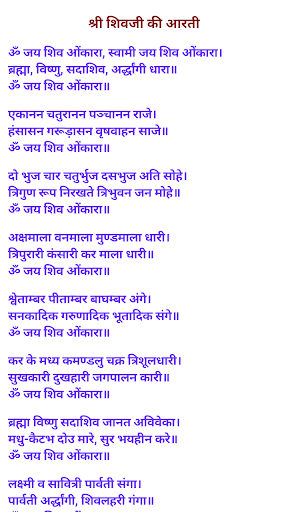 श्री शिवजी की आरती
ॐ जय शिव ओंकारा, स्वामी जय शिव ओंकारा।
ब्रह्मा, विष्णु, सदाशिव, अर्द्धांगी धारा॥
ॐ जय शिव ओंकारा॥
एकानन चतुरानन पञ्चानन राजे।
हंसासन गरूड़ासन वृषवाहन साजे॥
ॐ जय शिव ओंकारा॥
दो भुज चार चतुर्भुज दसभुज अति सोहे।
त्रिगुण रूप निरखते त्रिभुवन जन मोहे॥
ॐ जय शिव ओंकारा॥
अक्षमाला वनमाला मुण्डमाला धारी।
त्रिपुरारी कंसारी कर माला धारी॥
ॐ जय शिव ओंकारा॥
श्वेताम्बर पीताम्बर बाघम्बर अंगे।
सनकादिक गरुणादिक भूतादिक संगे॥
ॐ जय शिव ओंकारा॥
कर के मध्य कमण्डलु चक्र त्रिशूलधारी।
सुखकारी दुखहारी जगपालन कारी॥
ॐ जय शिव ओंकारा॥
ब्रह्मा विष्णु सदाशिव जानत अविवेका।
मधु-कैटभ दोउ मारे, सुर भयहीन करे॥
ॐ जय शिव ओंकारा॥
लक्ष्मी व सावित्री पार्वती संगा।
पार्वती अर्द्धांगी, शिवलहरी गंगा॥